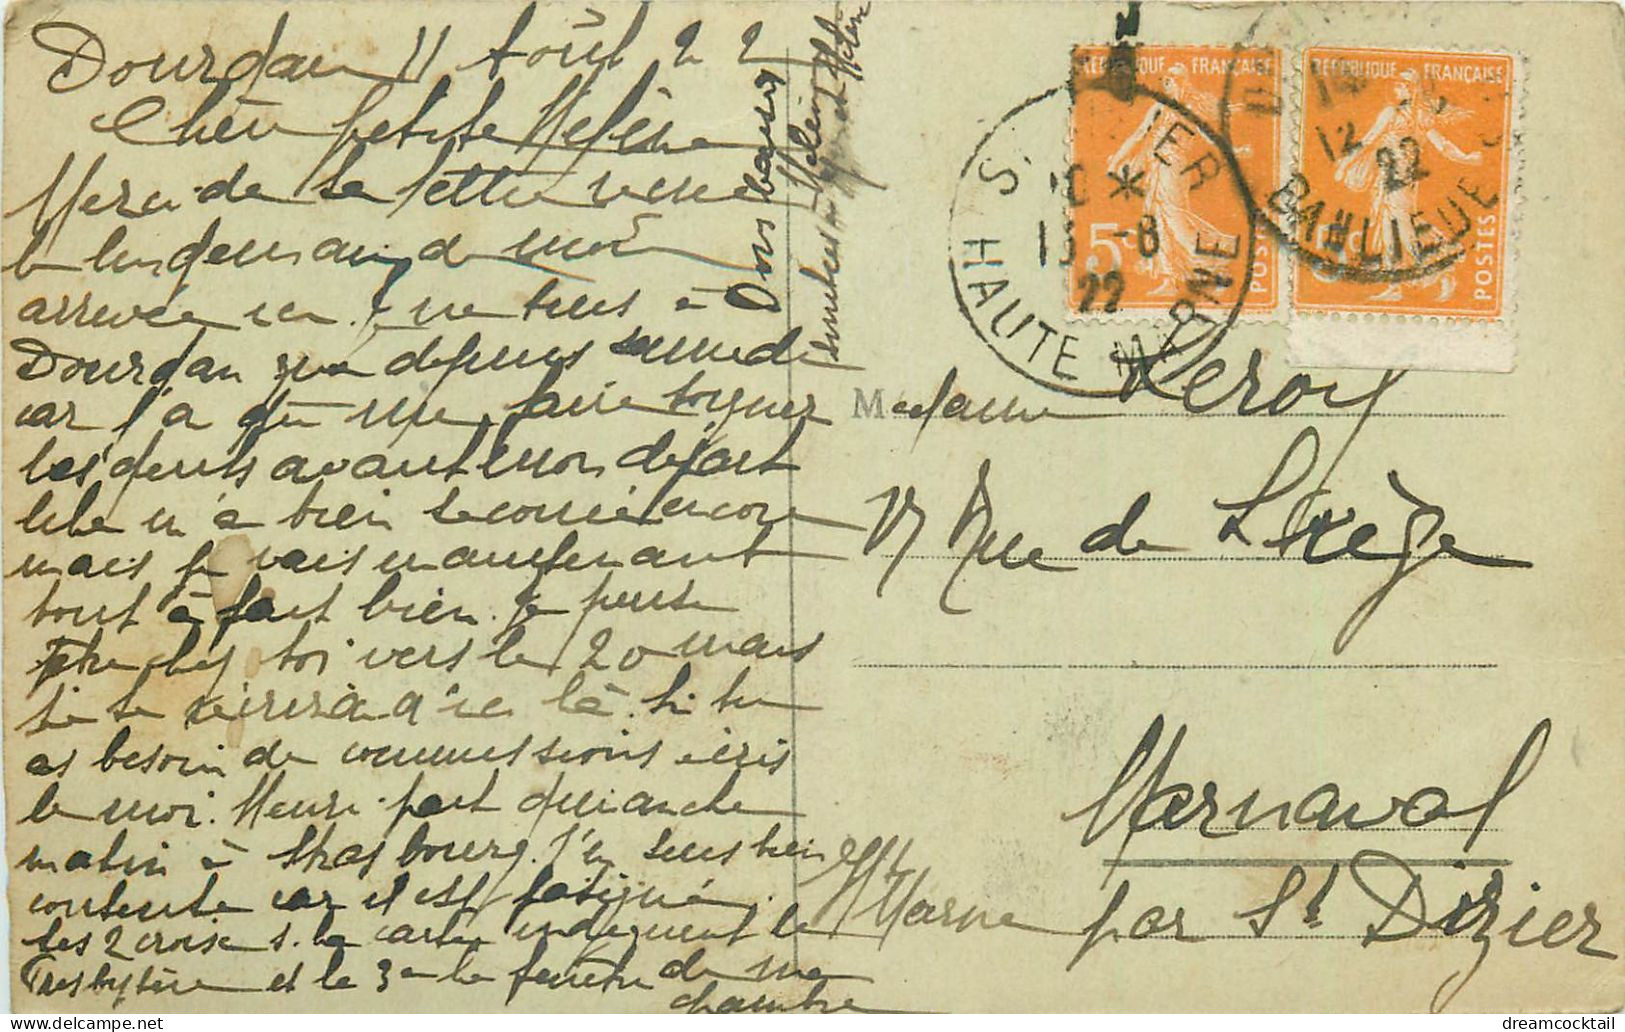 Dourdan 11 Août 22
Chère petite Hélène
Merci de ta lettre reçue
le lendemain de mon
arrivée ici. Je ne suis à
Dourdan que depuis samedi
car j'ai dû me faire soigner
les dents avant mon départ
m'a bien secouée encore
mais je vais maintenant
tout à fait bien. Je pense
être chez toi vers le 20 mais
je te d'ici là. Si tu
as besoin de commissions écris
le moi. Henri part dimanche
matin à Strasbourg. J'en suis bien
contente car il est fatigué.
Les 2 croix s. la carte indiquent le
Presbytère et la 3e la fenêtre de ma
chambre
Bons baisers
Madame Leroy
17 Rue de Liège
Marnaval
par St Dizier
Hte Marne
RÉPUBLIQUE FRANÇAISE
5c
POSTES
RÉPUBLIQUE FRANÇAISE
5c
POSTES
HAUTE MARNE
-8
22
12
22
BANLIEUE
dreamcocktail